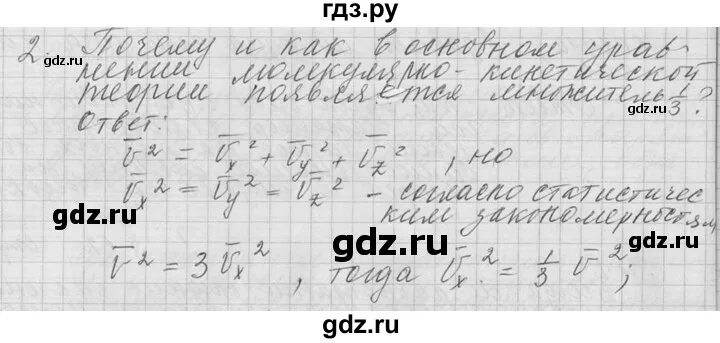 гдз.ру
2. Почему и как в основном урав-
нении молекулярно-кинетической
теории появляется множитель 1/3?
Ответ:
v̄² = v̄ₓ² + v̄ᵧ² + v̄_z² , но
v̄ₓ² = v̄ᵧ² = v̄_z² – согласно статистичес-
ким закономерностям
v̄² = 3 v̄ₓ² , тогда v̄ₓ² = 1/3 v̄²;
gdz.ru gdz.ru gdz.ru
gdz.ru
gdz.ru gdz.ru
gdz.ru
gdz.ru gdz.ru gdz.ru